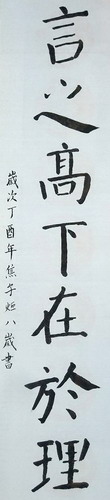 言之高下在於理
歲次丁酉年焦子姮八歲書